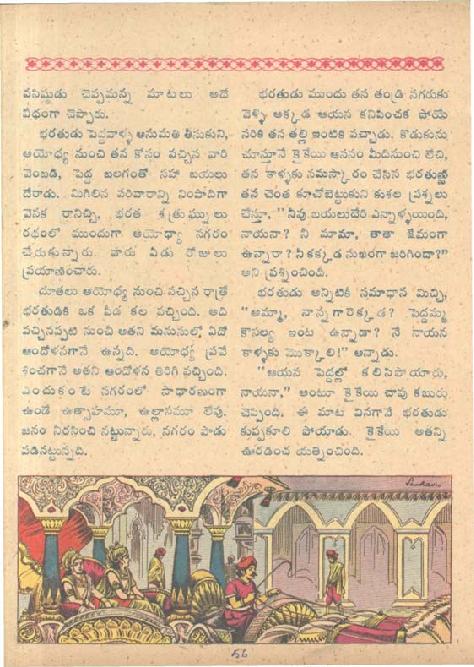 వసిష్ఠుడు చెప్పమన్న మాటలు అదే
విధంగా చెప్పారు.
భరతుడు పెద్దవాళ్ళ అనుమతి తీసుకుని,
అయోధ్య నుంచి తన కోసం వచ్చిన వారి
వెంబడి, పెద్ద బలగంతో సహా బయలు
దేరాడు. మిగిలిన పరివారాన్ని నింపాదిగా
వెనక రానిచ్చి, భరత శత్రుఘ్నులు
రథంలో ముందుగా అయోధ్యా నగరం
చేరుకున్నారు. వారు ఏడు రోజులు
ప్రయాణించారు.
దూతలు అయోధ్య నుంచి వచ్చిన రాత్రే
భరతుడికి ఒక పీడ కల వచ్చింది. అది
వచ్చినప్పటి నుంచి అతని మనసులో ఏదో
ఆందోళనగానే ఉన్నది. అయోధ్య ప్రవే
శించగానే అతని ఆందోళన తిరిగి వచ్చింది.
ఎందుకంటే నగరంలో సాధారణంగా
ఉండే ఉత్సాహమూ, ఉల్లాసమూ లేవు.
జనం నిరసించి నట్టున్నారు, నగరం పాడు
పడినట్టున్నది.
భరతుడు ముందు తన తండ్రి నగరుకు
వెళ్ళి అక్కడ ఆయన కనిపించక పోయే
సరికి తన తల్లి ఇంటికి వచ్చాడు. కొడుకును
చూస్తూనే కైకేయి ఆసనం మీదినుంచి లేచి,
తన కాళ్ళకు నమస్కారం చేసిన భరతుణ్ణి
తన చెంత కూచోబెట్టుకుని కుశల ప్రశ్నలు
చేస్తూ, "నీవు బయలుదేరి ఎన్నాళ్ళయింది,
నాయనా? నీ మామా, తాతా క్షేమంగా
ఉన్నారా? నీకక్కడ సుఖంగా జరిగిందా?"
అని ప్రశ్నించింది.
భరతుడు అన్నిటికీ సమాధాన మిచ్చి,
"అమ్మా, నాన్నగారెక్కడ? పెద్దమ్మ
కౌసల్య ఇంట ఉన్నాడా? నే నాయన
కాళ్ళకు మొక్కాలి!" అన్నాడు.
"ఆయన పెద్దల్లో కలిసిపోయారు,
నాయనా," అంటూ కైకేయి చావు కబురు
చెప్పింది. ఈ మాట వినగానే భరతుడు
కుప్పకూలి పోయాడు. కైకేయి అతన్ని
ఊరడించ యత్నించింది.
56